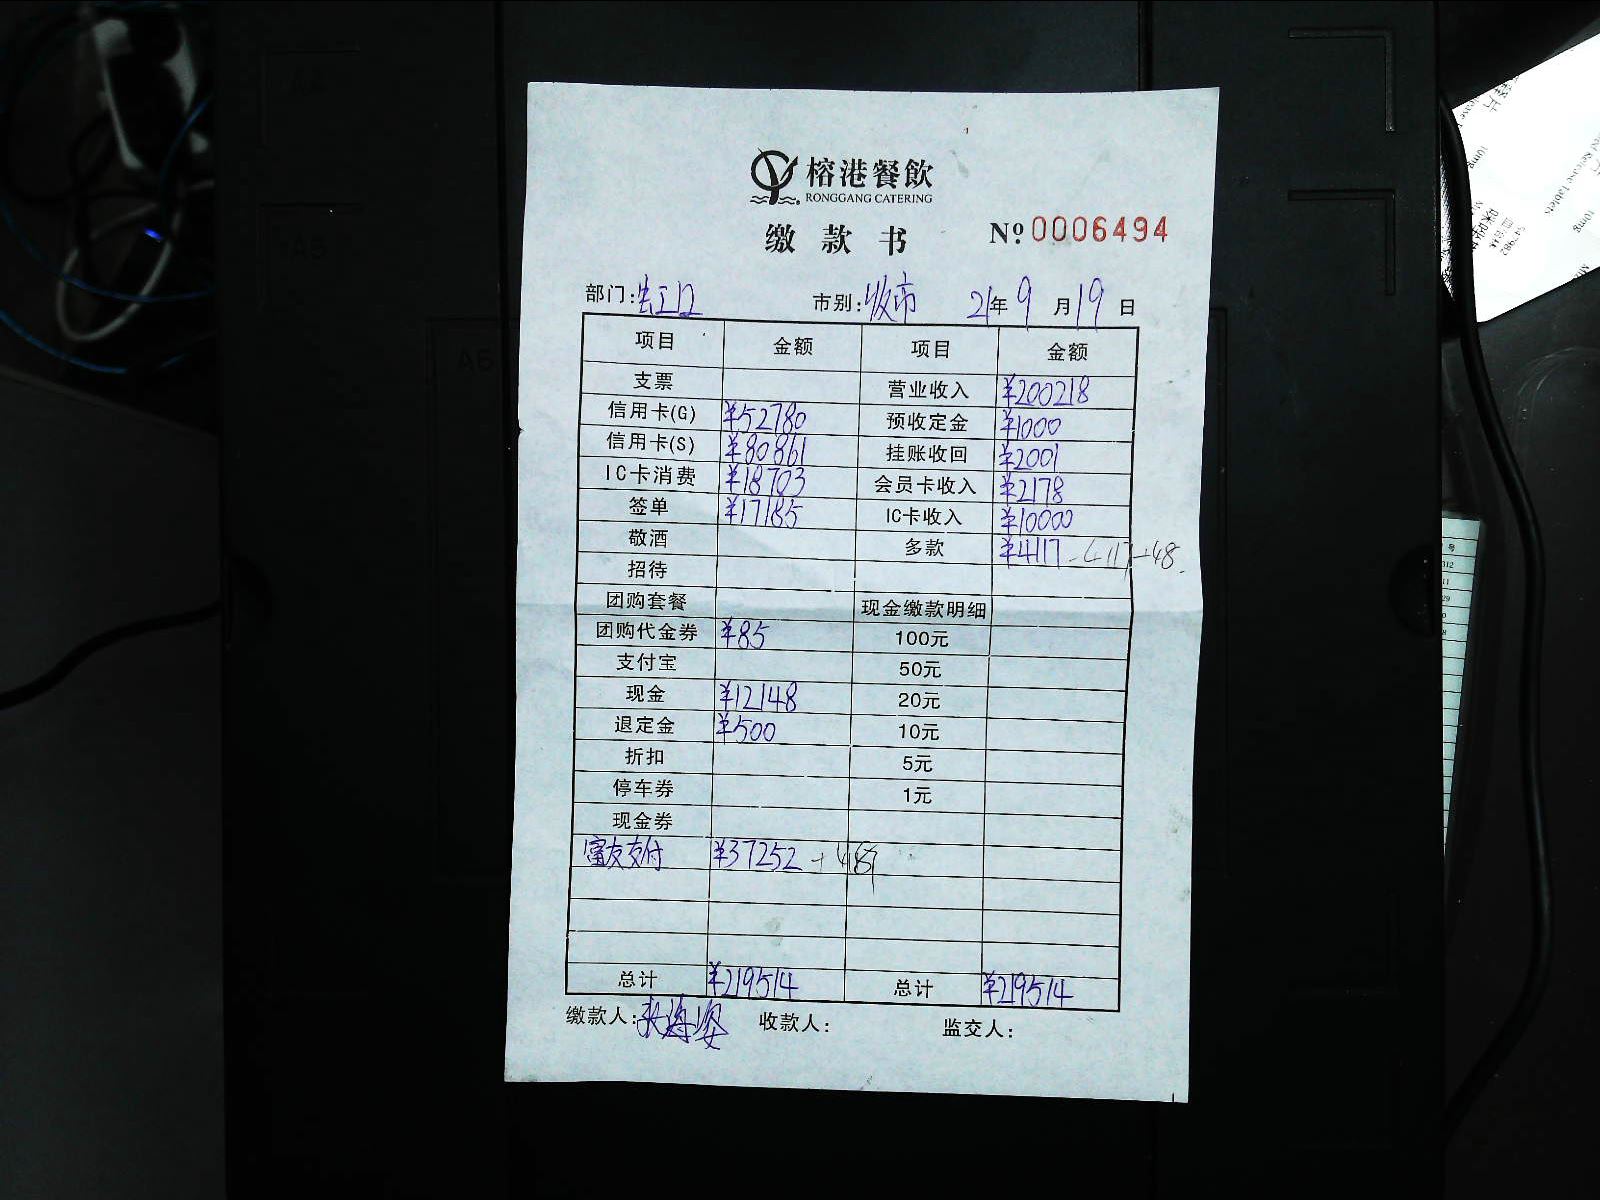 榕港餐飲
RONGGANG CATERING
缴款书 No 0006494
部门: 市别:饭市 21年9月19日
项目 金额 项目 金额
支票 营业收入 ¥200218
信用卡(G) ¥52780 预收定金 ¥1000
信用卡(S) ¥80861 挂账收回 ¥2001
IC卡消费 ¥18703 会员卡收入 ¥2178
签单 ¥17185 IC卡收入 ¥10000
敬酒 多款 ¥4117
招待
团购套餐 现金缴款明细
团购代金券 ¥85 100元
支付宝 50元
现金 ¥12148 20元
退定金 ¥500 10元
折扣 5元
停车券 1元
现金券
富友支付 ¥37252
总计 ¥219514 总计 ¥219514
缴款人: 收款人: 监交人: